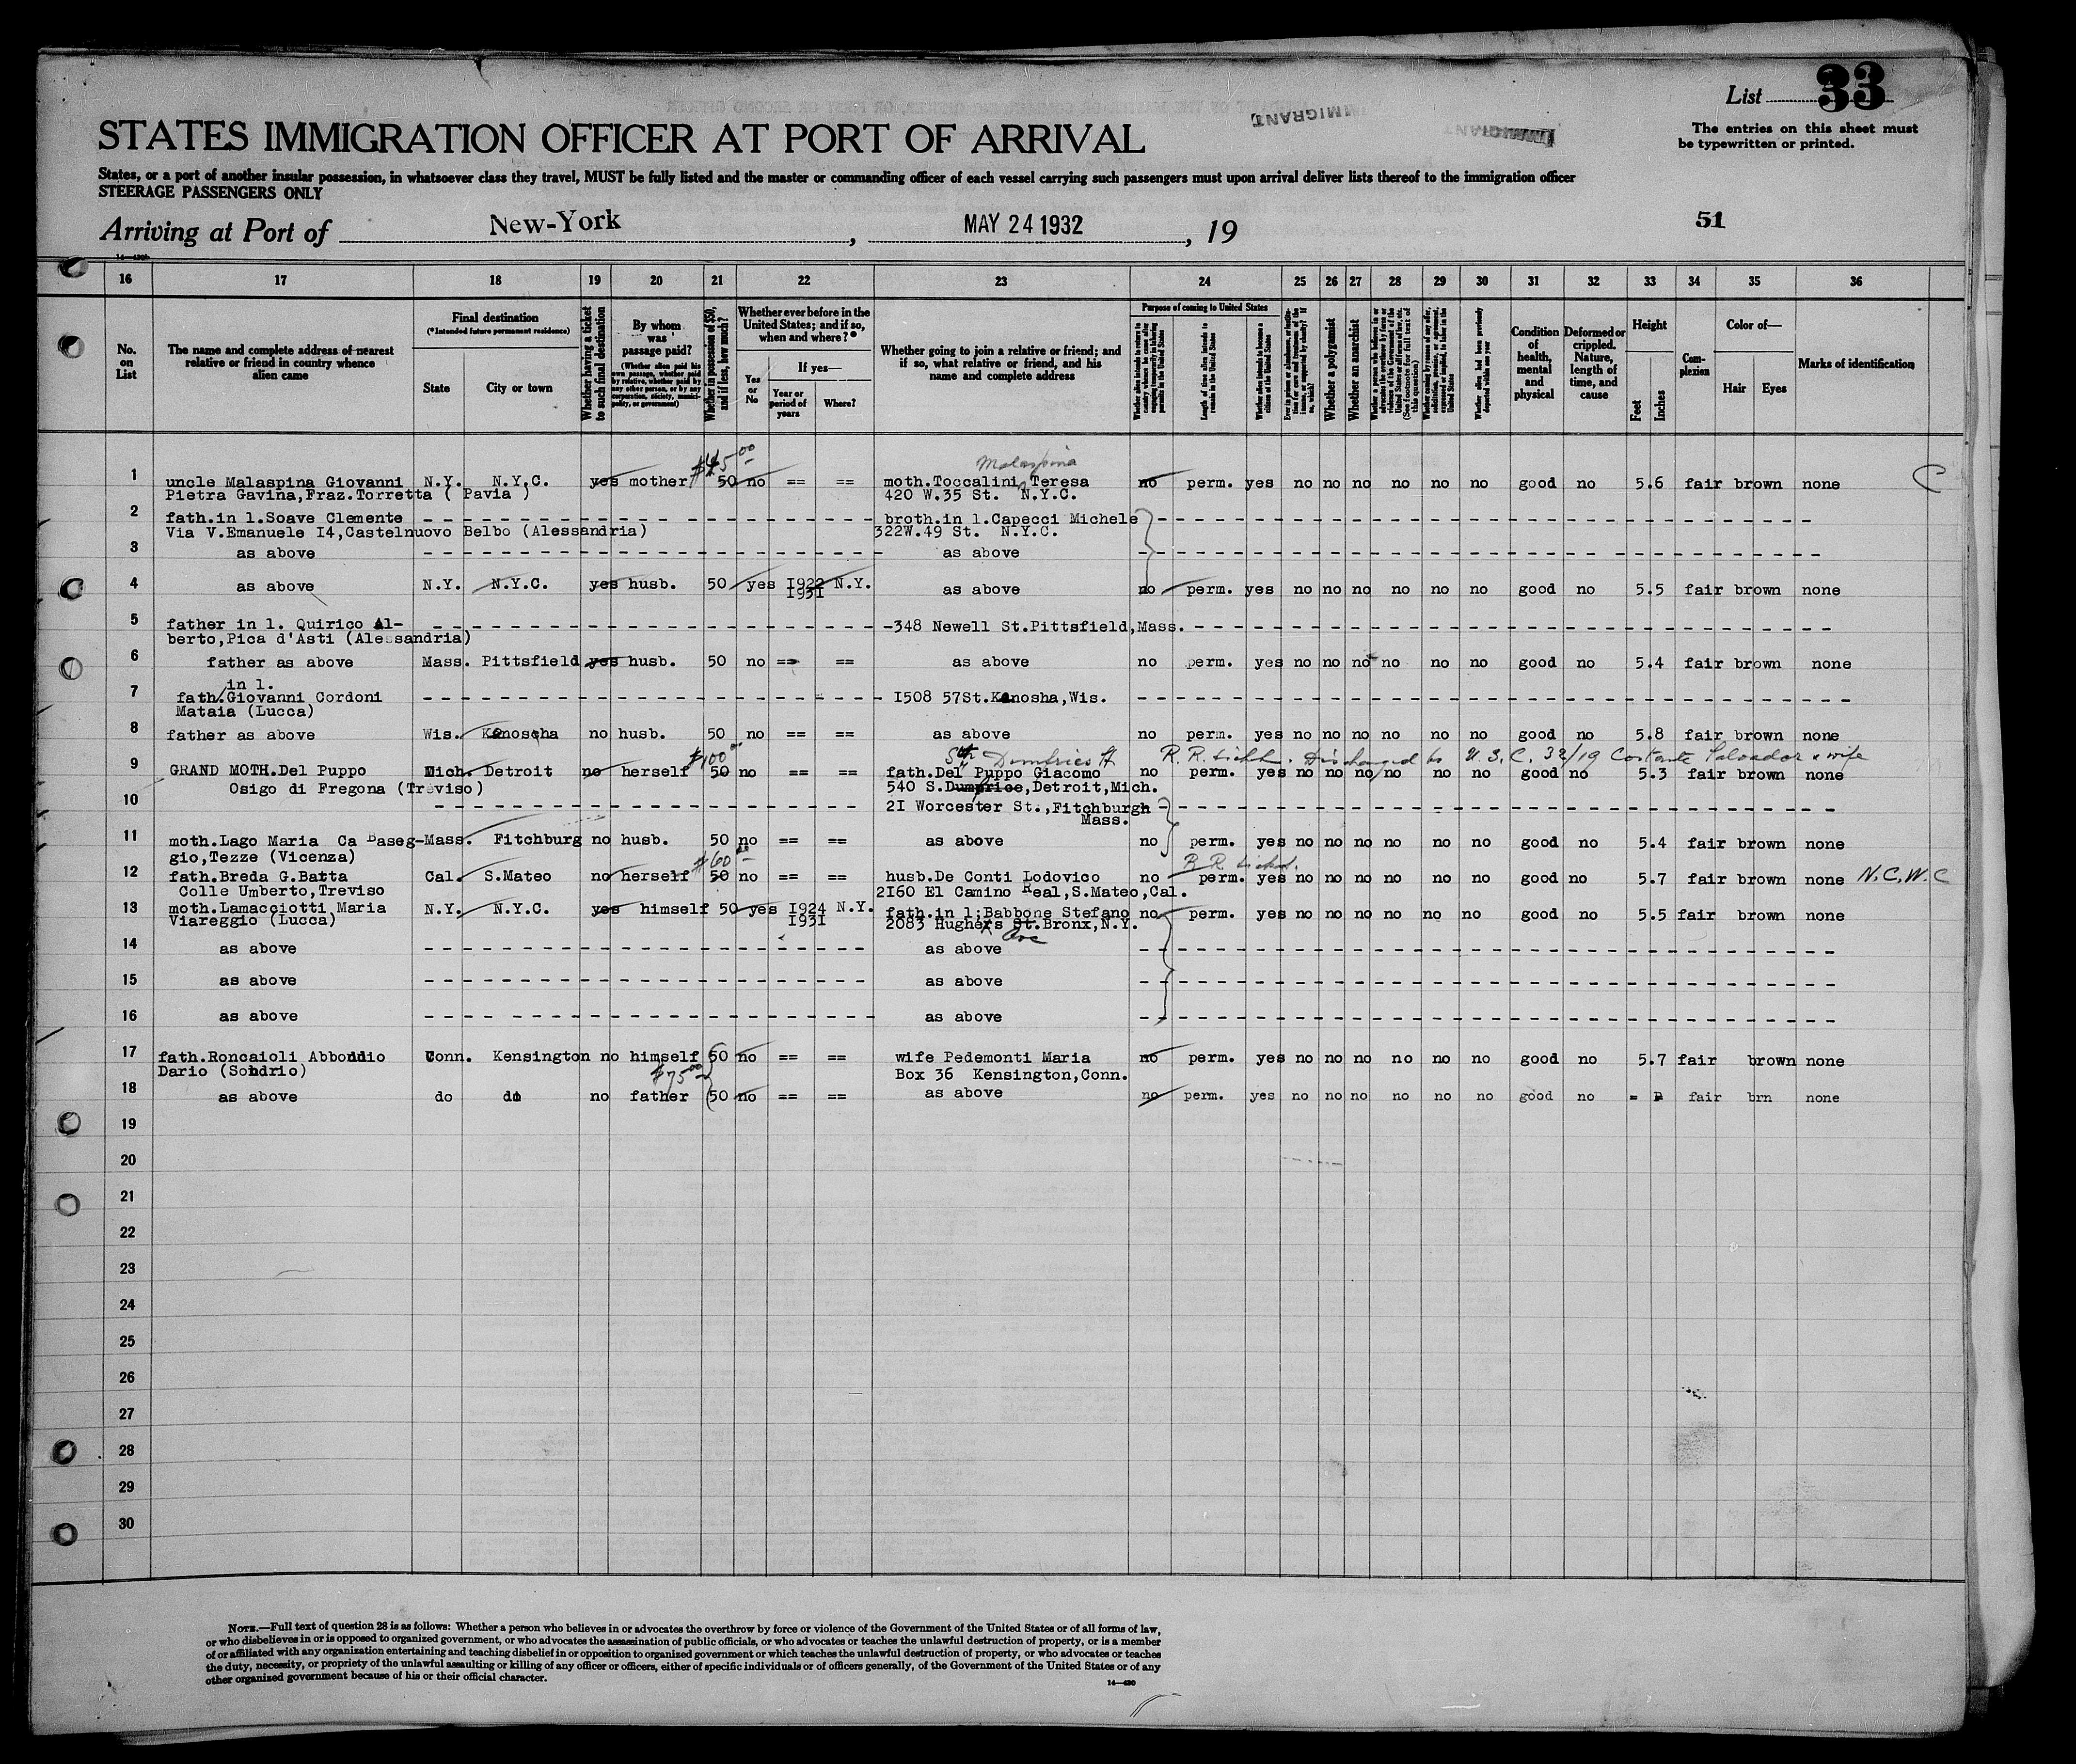 List 33
STATES IMMIGRATION OFFICER AT PORT OF ARRIVAL
The entries on this sheet must
be typewritten or printed.
States, or a port of another insular possession, in whatsoever class they travel, MUST be fully listed and the master or commanding officer of each vessel carrying such passengers must upon arrival deliver lists thereof to the immigration officer
STEERAGE PASSENGERS ONLY
51
Arriving at Port of New-York, MAY 24 1932, 19
16 17 18 19 20 21 22 23 24 25 26 27 28 29 30 31 32 33 34 35 36
No. on List
The name and complete address of nearest relative or friend in country whence alien came
Final destination
(*Intended future permanent residence)
State City or town
Whether having a ticket to such final destination
By whom was passage paid?
(Whether alien paid his own passage, whether paid by relative, whether paid by any other person, or by any corporation, society, municipality, or government)
Whether in possession of $50, and if less, how much?
Whether ever before in the United States; and if so, when and where?*
Yes or No
If yes—
Year or period of years
Where?
Whether going to join a relative or friend; and if so, what relative or friend, and his name and complete address
Purpose of coming to United States
Length of time alien intends to remain in the United States
Whether alien intends to become a citizen of the United States
Whether a polygamist
Whether an anarchist
Whether alien had been previously deported within one year
Condition of health, mental and physical
Deformed or crippled. Nature, length of time, and cause
Height
Feet Inches
Complexion
Color of—
Hair Eyes
Marks of identification
$45 00 Malaspina
1 uncle Malaspina Giovanni N.Y. N.Y.C. yes mother 50 no == == moth.Toccalini Teresa no perm. yes no no no no no no good no 5.6 fair brown none C
Pietra Gavina,Fraz.Torretta ( Pavia ) 420 W.35 St. N.Y.C.
2 fath.in l.Soave Clemente broth.in l.Capecci Michele
Via V.Emanuele I4,Castelnuovo Belbo (Alessandria) 322W.49 St. N.Y.C.
3 as above as above
4 as above N.Y. N.Y.C. yes husb. 50 yes I922 N.Y. as above no perm. yes no no no no no no good no 5.5 fair brown none
I931
5 father in l. Quirico Al-
berto,Pica d'Asti (Alessandria) -348 Newell St.Pittsfield,Mass.
6 father as above Mass. Pittsfield yes husb. 50 no == == as above no perm. yes no no no no no no good no 5.4 fair brown none
in l.
7 fath.Giovanni Cordoni I508 57St.Kenosha,Wis.
Mataia (Lucca)
8 father as above Wis. Kenoscha no husb. 50 no == == as above no perm. yes no no no no no no good no 5.8 fair brown none
$100 Sth Dumfries St R.R. ticht. Discharged to U.S.C. 32/19 Costante Salvador & wife
9 GRAND MOTH.Del Puppo Mich. Detroit no herself 50 no == == fath.Del Puppo Giacomo no perm. yes no no no no no no good no 5.3 fair brown none
Osigo di Fregona (Treviso) 540 S.Dumfrice,Detroit,Mich.
10 2I Worcester St.,Fitchburgh
Mass.
11 moth.Lago Maria Ca Baseg-Mass. Fitchburg no husb. 50 no == == as above no perm. yes no no no no no no good no 5.4 fair brown none
gio,Tezze (Vicenza) $60
12 fath.Breda G.Batta Cal. S.Mateo no herself 50 no == == husb.De Conti Lodovico no perm. yes no no no no no no good no 5.7 fair brown none N.C.W.C
Colle Umberto,Treviso 2I60 El Camino Real,S.Mateo,Cal.
13 moth.Lamacciotti Maria N.Y. N.Y.C. yes himself 50 yes I924 N.Y. fath.in l;Babbone Stefano no perm. yes no no no no no no good no 5.5 fair brown none
Viareggio (Lucca) I931 2083 Hughers St.Bronx,N.Y.
Ave
14 as above as above
15 as above as above
16 as above as above
17 fath.Roncaioli Abbondio Conn. Kensington no himself 50 no == == wife Pedemonti Maria no perm. yes no no no no no no good no 5.7 fair brown none
Dario (Sondrio) $75 00 Box 36 Kensington,Conn.
18 as above do do no father 50 no == == as above no perm. yes no no no no no no good no = fair brn none
19
20
21
22
23
24
25
26
27
28
29
30
NOTE.—Full text of question 28 is as follows: Whether a person who believes in or advocates the overthrow by force or violence of the Government of the United States or of all forms of law,
or who disbelieves in or is opposed to organized government, or who advocates the assassination of public officials, or who advocates or teaches the unlawful destruction of property, or is a member
of or affiliated with any organization entertaining and teaching disbelief in or opposition to organized government or which teaches the unlawful destruction of property, or who advocates or teaches
the duty, necessity, or propriety of the unlawful assaulting or killing of any officer or officers, either of specific individuals or of officers generally, of the Government of the United States or of any
other organized government because of his or their official character.
14—430